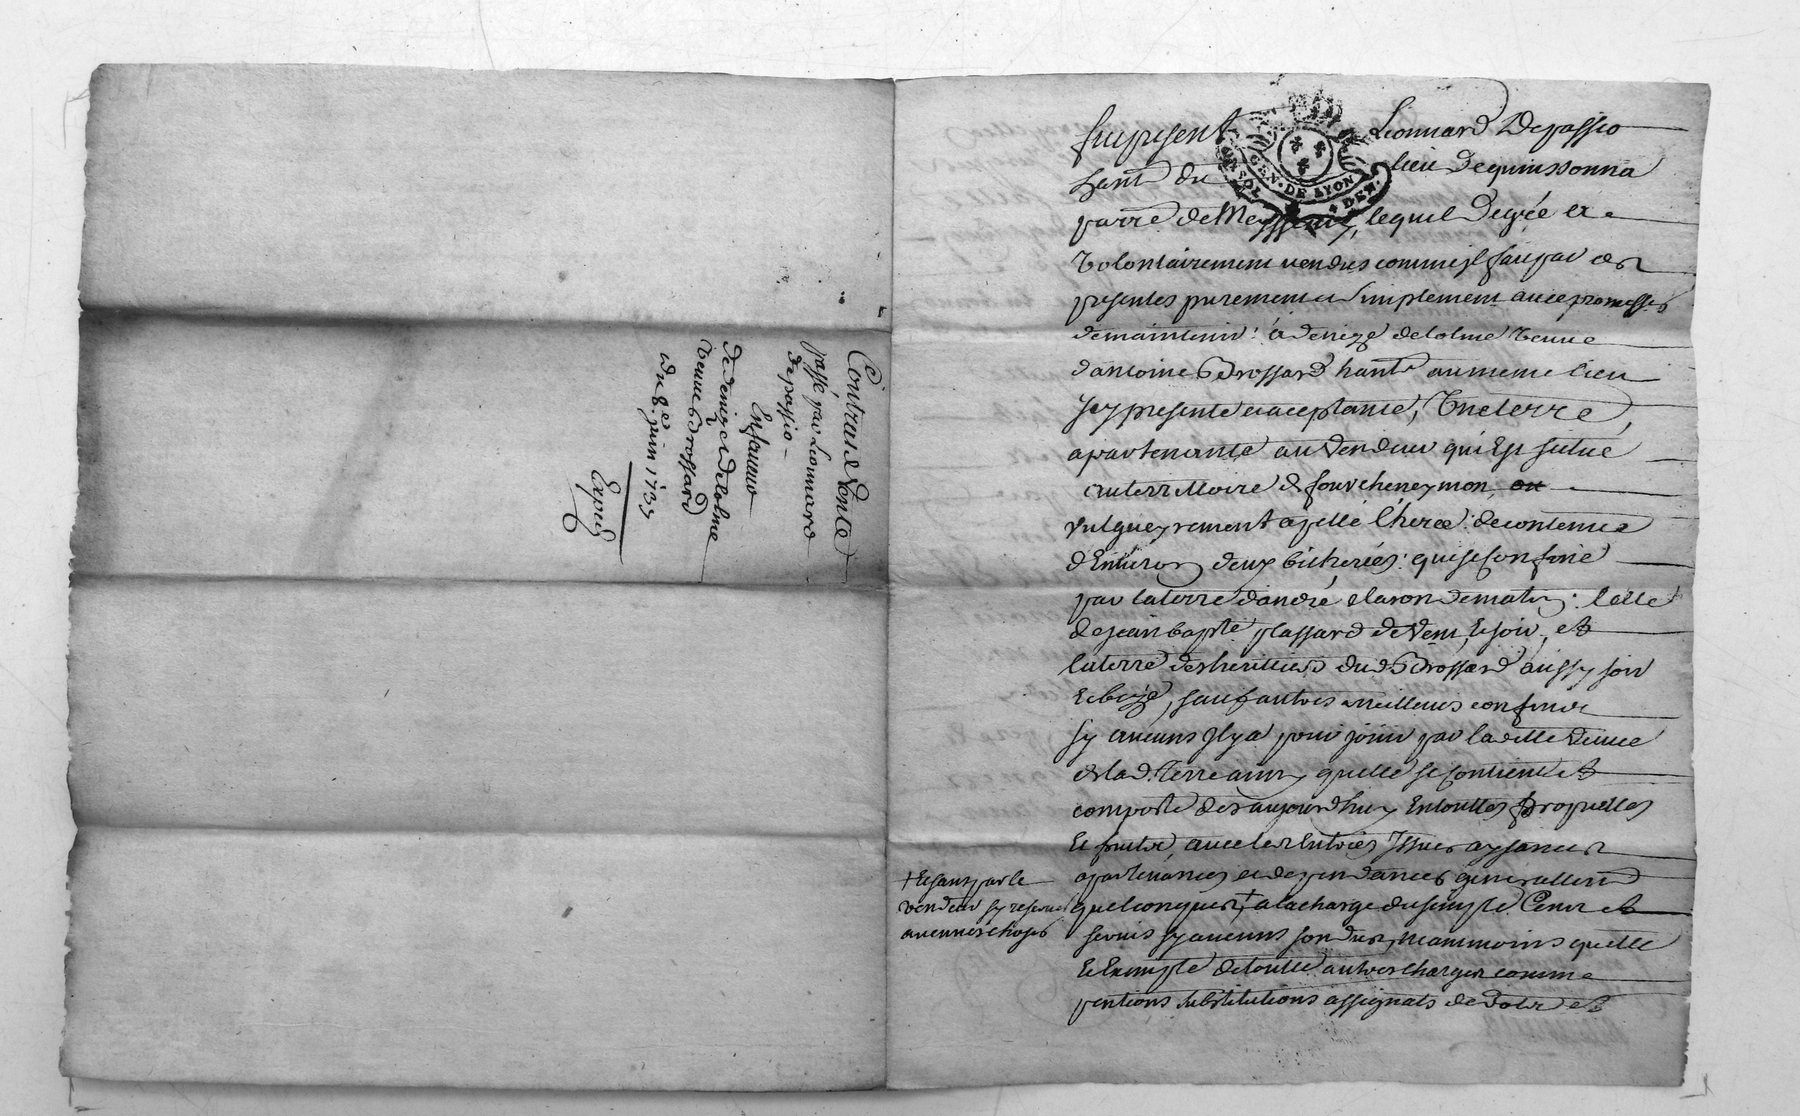 Contrat de Vente
passé par Leonnard
depassio
En faveur
de denize delolme
veuve Brossard
du 8.e juin 1733
Expedié
fut present Leonnard Depassio
hant du lieu dequinssonna
parre de lequel degrée et
Volontairement vendus comme jl fait par ces
presentes purement et Simplement avec promesses
demaintenir: à denize delolme veuve
dantoine Brossard hant au meme lieu
jcy presente et aceptante, Une terre,
apartenante au Vendeur qui Est situé
au territtoire de fourcheneymon,
vulgueyrement apellé de contenue
d'Environ deux bicherées: qui se confine
par la terre d'andré de matin: Celle
de jean bapte plassard de Vent et soir, et
la terre des herittiers dud Brossard aussy soir
et bize, sauf autres meilleurs confins
sy aucuns jl y a pour jouir par laditte veuve
de lad. Terre ainsy quelle se contient et
comporte des aujourdhuy En touttes
et fruits, avec ses Entrées Issues aysances
apartenances et dependances generallement
quelconques, + a la charge du simple Cens et
servis sy aucuns sont dus, neammoins quitte
et Exempte de toutte autres charges comme
pentions substitutions assignats de dots et
+ Et sans par le
vendeur sy reserver
aucunnes choses
GEN. DE LYON